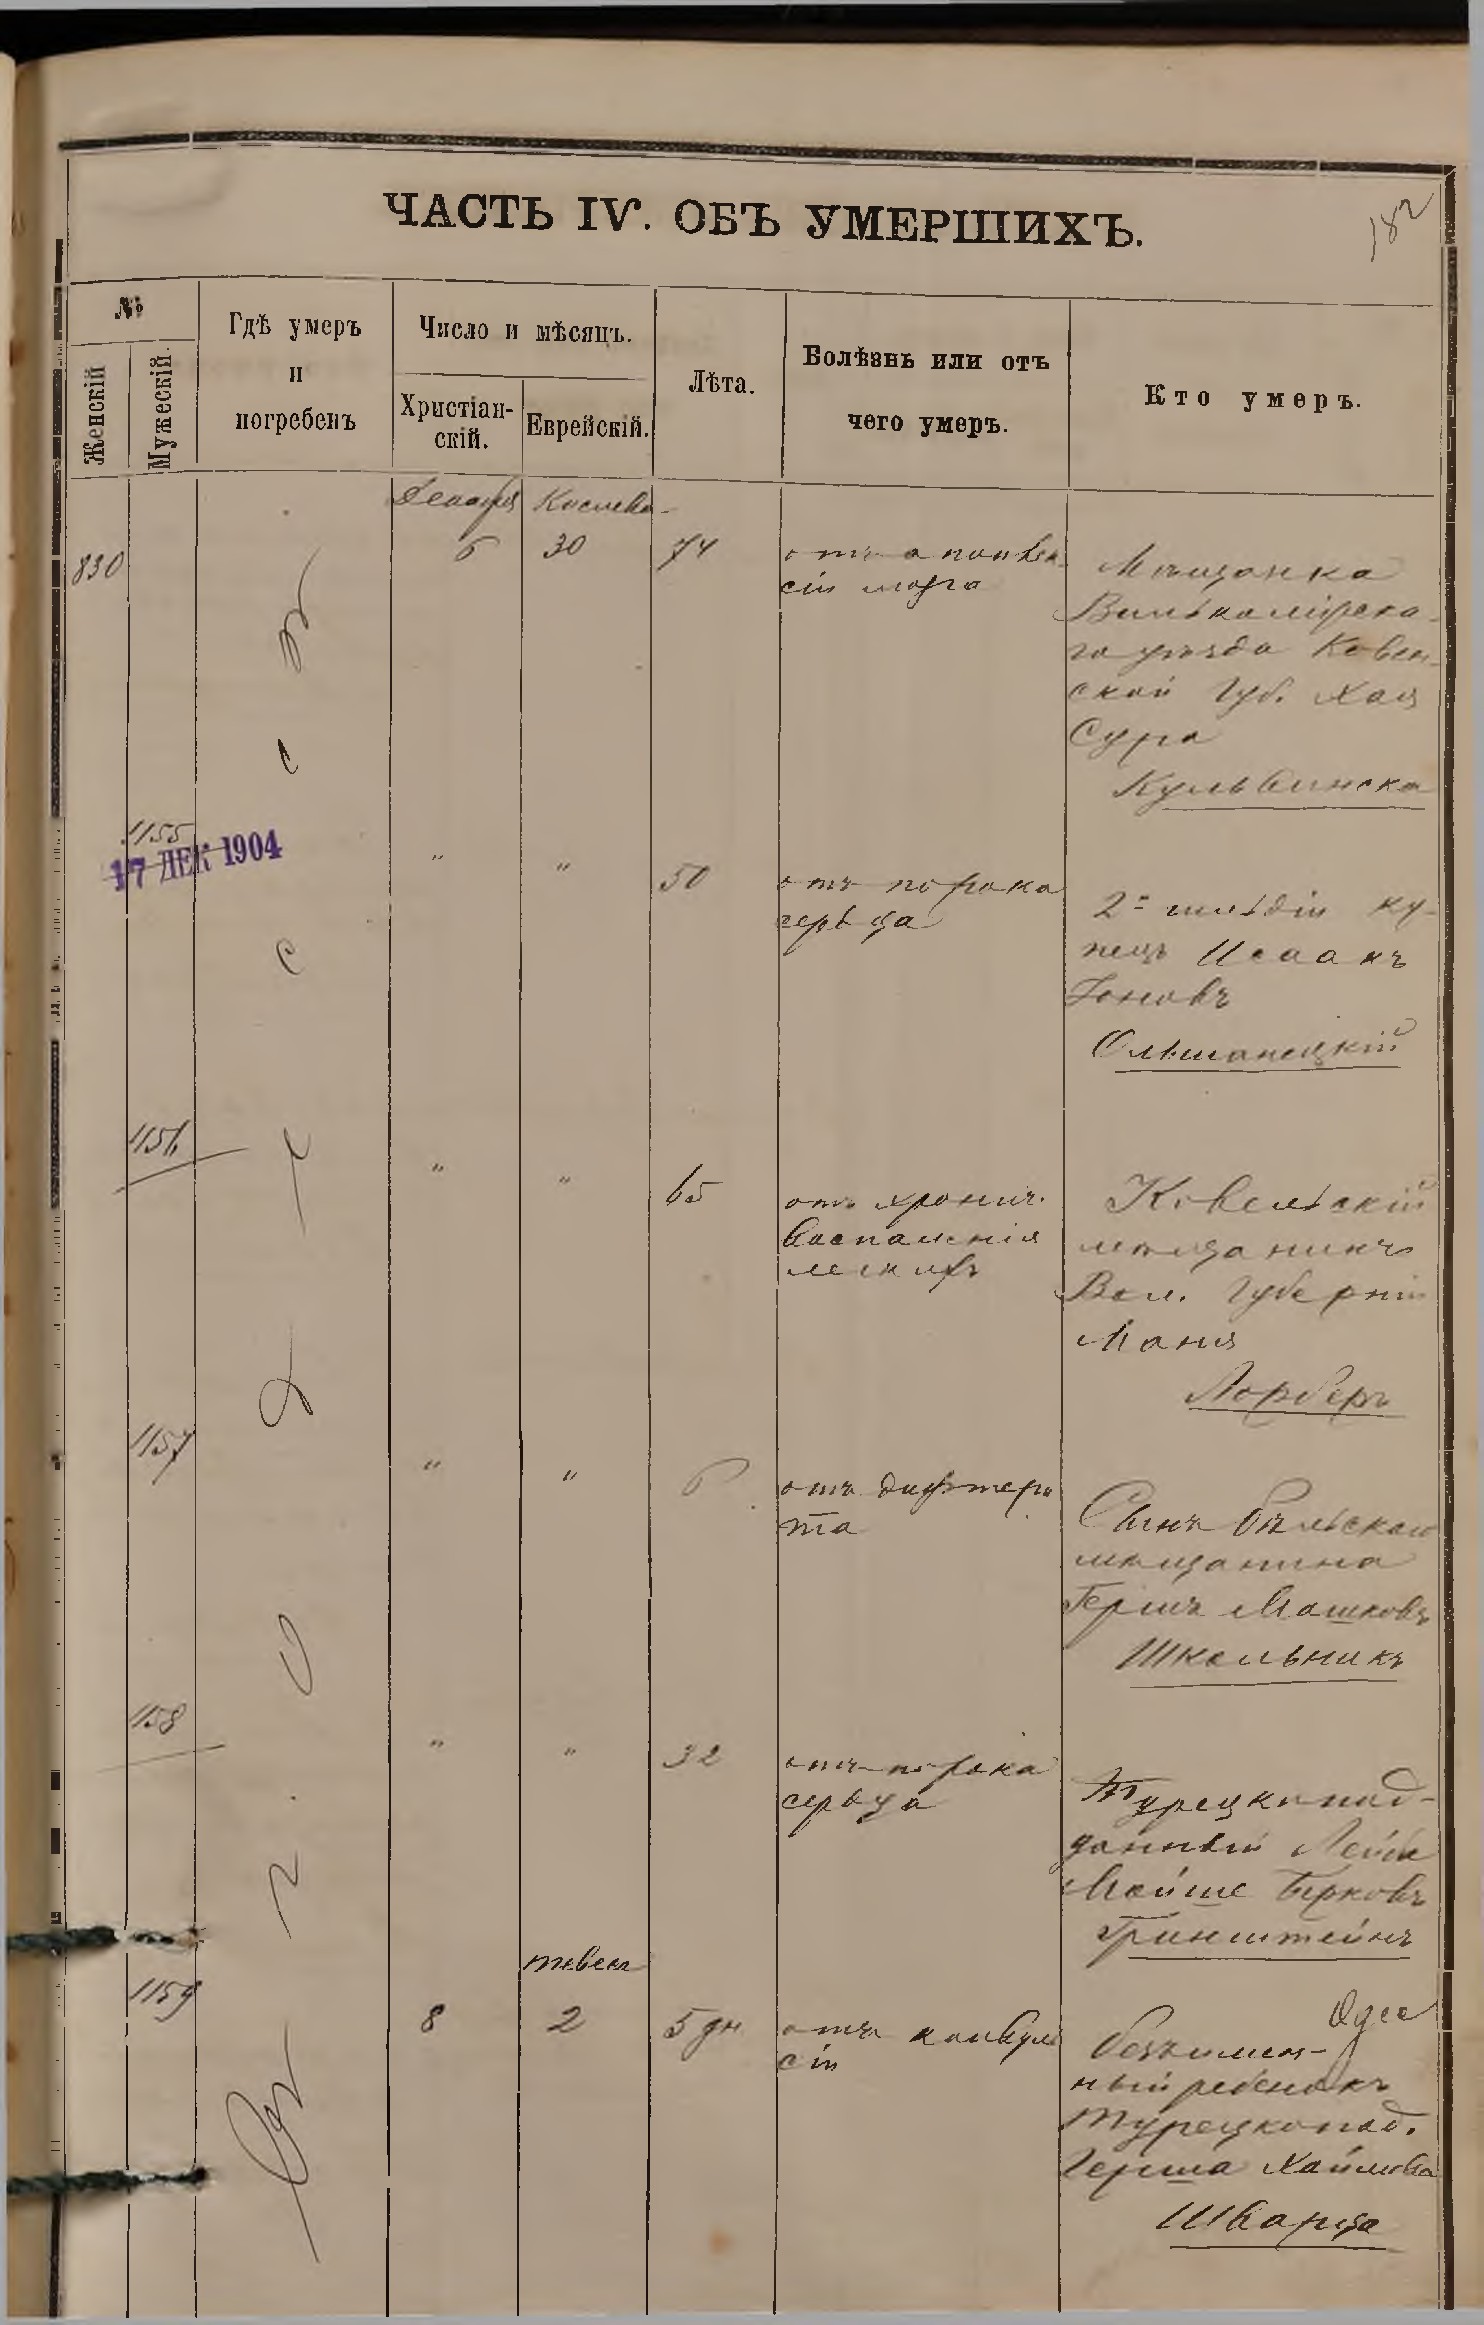 182
ЧАСТЬ IV. ОБЪ УМЕРШИХЪ.
№
Женскій
Мужескій.
Гдѣ умеръ
и
погребенъ
Число и мѣсяцъ.
Христіан-
скій.
Еврейскій.
Лѣта.
Болѣзнь или отъ
чего умеръ.
Кто умеръ.
Въ г. Одессѣ
Декабря Кислева
830 6 30 74
отъ апоплек-
сіи мозга
Мѣщанка
Вилькомирска-
го уѣзда Ковен-
ской Губ. Хая
Сура
Кульвинска
1155 " " 50
17 ДЕК 1904
отъ порока
сердца
2й гильдіи ку-
пецъ Исаакъ
Іоновъ
Ольшанецкій
1156 " " 65
отъ хронич.
воспаленія
легкихъ
Ковельскій
мѣщанинъ
Вол. Губерніи
Маня
Лорберъ
1157 " " 6
отъ дифтери
та
Сынъ бѣльскаго
мѣщанина
Гершъ Машковъ
Школьникъ
1158 " " 32
отъ порока
сердца
Турецкопод-
данный Лейба
Мойше Берковъ
Гринштейнъ
тевесъ
1159 8 2 5 дн
отъ конвуль
сіи
Одес
безымен-
ный ребенокъ
Турецкопод.
Герша Хаимова
Шварца